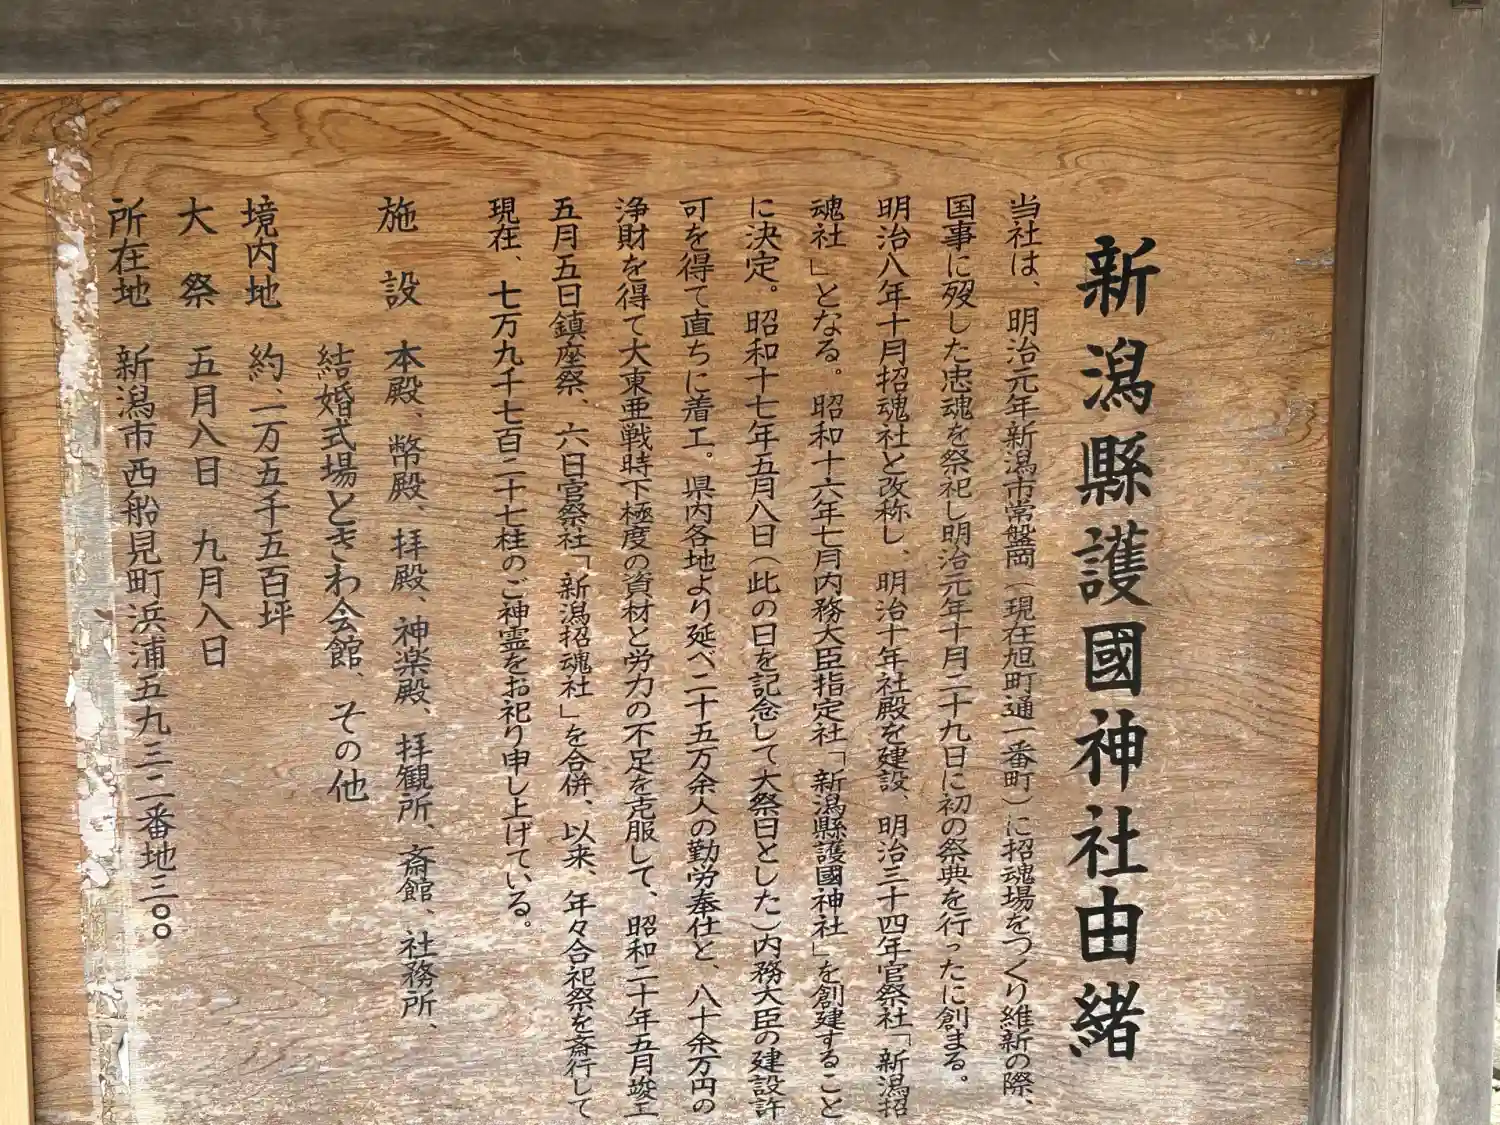 新潟縣護國神社由緒
当社は、明治元年新潟市常盤岡（現在旭町通一番町）に招魂場をつくり維新の際、
国事に歿した忠魂を祭祀し明治元年十月二十九日に初の祭典を行ったに創まる。
明治八年十月招魂社と改称し、明治十年社殿を建設、明治三十四年官祭社「新潟招
魂社」となる。昭和十六年七月内務大臣指定社「新潟縣護國神社」を創建すること
に決定。昭和十七年五月八日（此の日を記念して大祭日とした）内務大臣の建設許
可を得て直ちに着工。県内各地より延べ二十五万余人の勤労奉仕と、八十余万円の
浄財を得て大東亜戦時下極度の資材と労力の不足を克服して、昭和二十年五月竣工
五月五日鎮座祭、六日官祭社「新潟招魂社」を合併、以来、年々合祀祭を斎行して
現在、七万九千七百二十七柱のご神霊をお祀り申し上げている。
施設 本殿、幣殿、拝殿、神楽殿、拝観所、斎館、社務所、
結婚式場ときわ会館、その他
境内地 約、一万五千五百坪
大祭 五月八日 九月八日
所在地 新潟市西船見町浜浦五九三二番地三〇〇